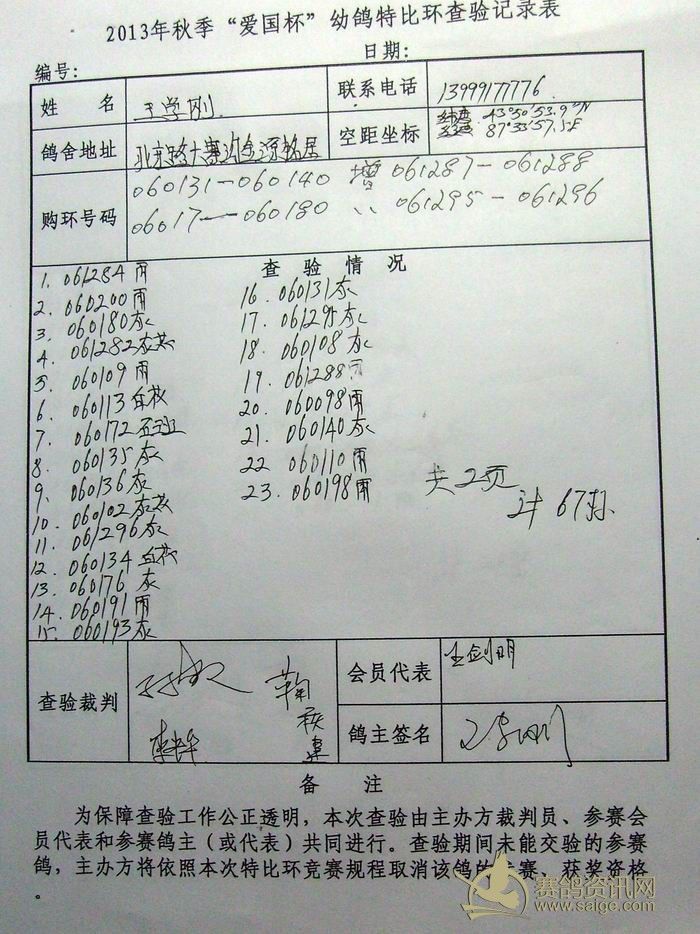 2013年秋季“爱国杯”幼鸽特比环查验记录表
编号: 日期:
姓 名 王学刚 联系电话 13999177776
鸽舍地址 北京路大寨沟金源铭居 空距坐标 纬度 43°50'53.9"N
87°33'57.1E
购环号码 060131—060140 增 061287—061288
06017—060180 〃 061295—061296
查 验 情 况
1. 061284 雨
2. 060200 雨
3. 060180 灰
4. 061282 灰
5. 060109 雨
6. 060113
7. 060172
8. 060135 灰
9. 060136 灰
10. 060102 灰
11. 061296 灰
12. 060134
13. 060176 灰
14. 060191 雨
15. 060193 灰
16. 060131 灰
17. 061295 灰
18. 060108 灰
19. 061288 雨
20. 060098 雨
21. 060140 灰
22 060110 雨
23. 060198 雨
共2页
计 67羽
查验裁判
会员代表 王剑明
鸽主签名 王学刚
备 注
为保障查验工作公正透明，本次查验由主办方裁判员、参赛会
员代表和参赛鸽主（或代表）共同进行。查验期间未能交验的参赛
鸽，主办方将依照本次特比环竞赛规程取消该鸽的参赛、获奖资格
。
赛鸽资讯网
www.saige.com